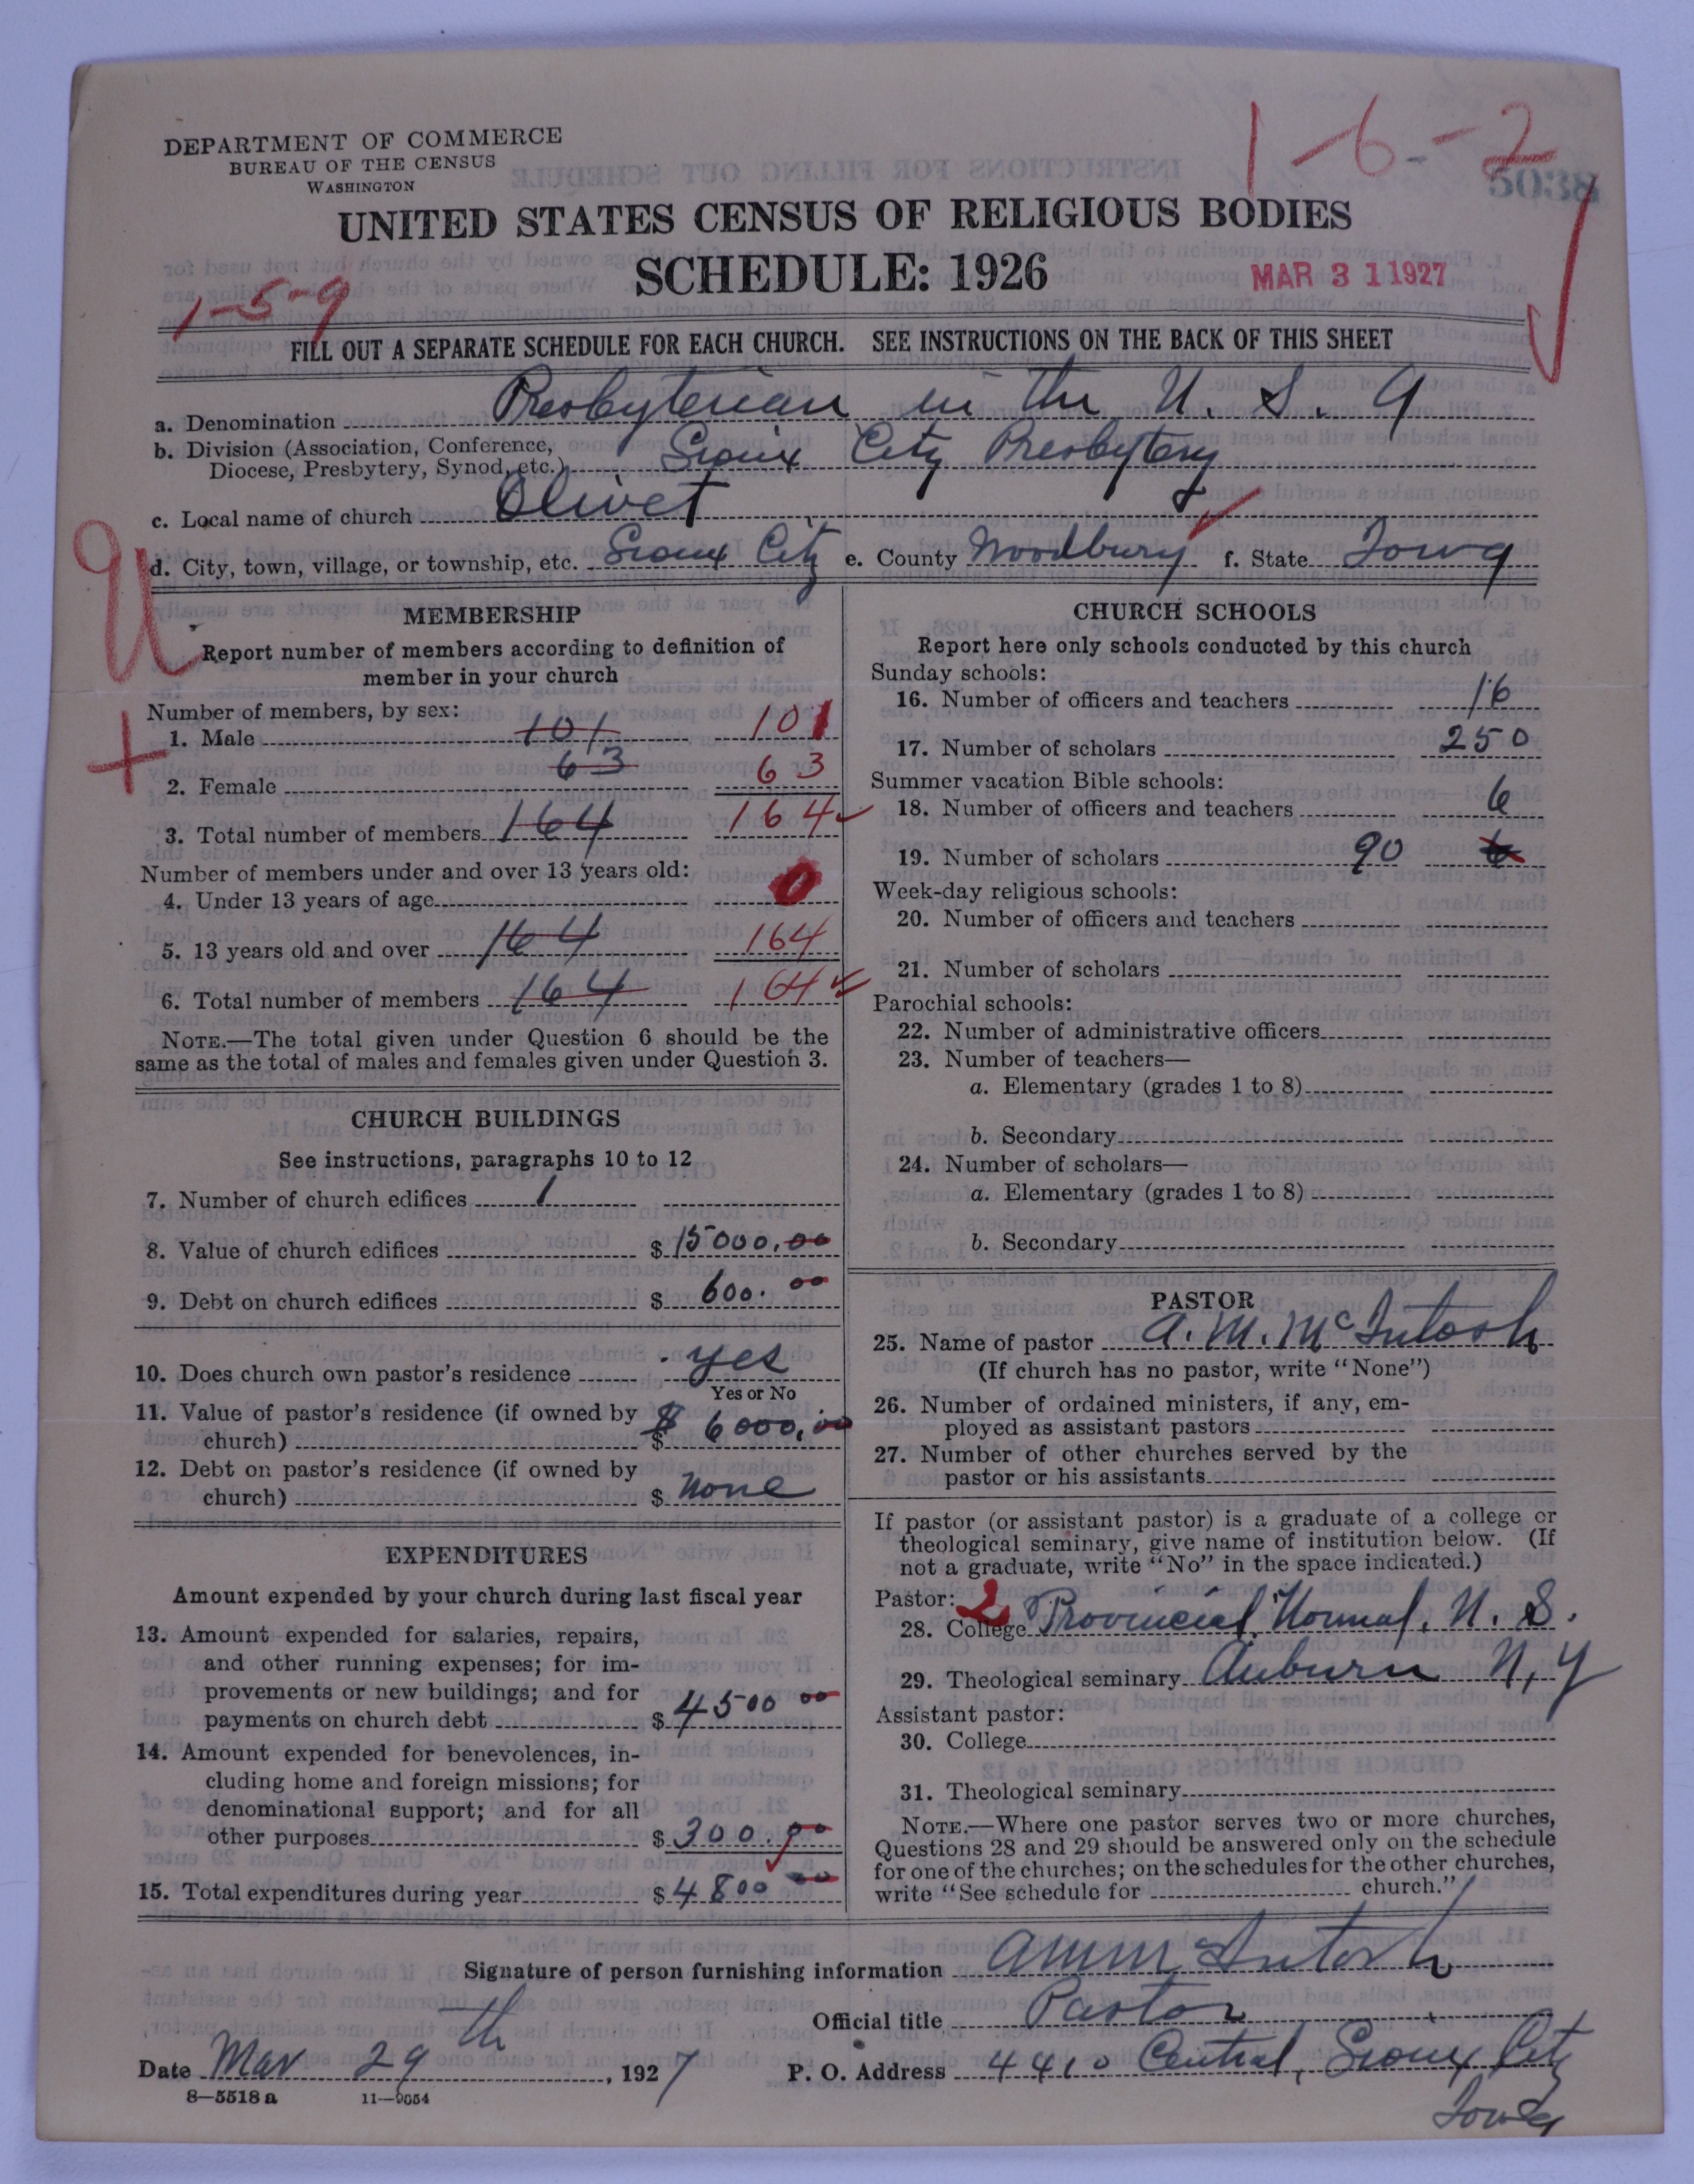 DEPARTMENT OF COMMERCE
BUREAU OF THE CENSUS
WASHINGTON
1-6-2
5038
UNITED STATES CENSUS OF RELIGIOUS BODIES
SCHEDULE: 1926
MAR 31 1927
1-5-9
FILL OUT A SEPARATE SCHEDULE FOR EACH CHURCH. SEE INSTRUCTIONS ON THE BACK OF THIS SHEET
a. Denomination Presbyterian in the U. S. A
b. Division (Association, Conference,
Diocese, Presbytery, Synod, etc.) Sioux City Presbytery
c. Local name of church Olivet
d. City, town, village, or township, etc. Sioux City e. County Woodbury f. State Iowa
U
MEMBERSHIP
Report number of members according to definition of
member in your church
Number of members, by sex:
1. Male 101 101
2. Female 63 63
3. Total number of members 164 164
Number of members under and over 13 years old:
4. Under 13 years of age 0
5. 13 years old and over 164 164
6. Total number of members 164 164
NOTE.—The total given under Question 6 should be the
same as the total of males and females given under Question 3.
CHURCH BUILDINGS
See instructions, paragraphs 10 to 12
7. Number of church edifices 1
8. Value of church edifices $ 15000.00
9. Debt on church edifices $ 600.00
10. Does church own pastor's residence yes
Yes or No
11. Value of pastor's residence (if owned by
church) $ $ 6000.00
12. Debt on pastor's residence (if owned by
church) $ None
EXPENDITURES
Amount expended by your church during last fiscal year
13. Amount expended for salaries, repairs,
and other running expenses; for im-
provements or new buildings; and for
payments on church debt $ 4500 00
14. Amount expended for benevolences, in-
cluding home and foreign missions; for
denominational support; and for all
other purposes $ 300.00
15. Total expenditures during year $ 4800 00
CHURCH SCHOOLS
Report here only schools conducted by this church
Sunday schools:
16. Number of officers and teachers 16
17. Number of scholars 250
Summer vacation Bible schools:
18. Number of officers and teachers 6
19. Number of scholars 90 6
Week-day religious schools:
20. Number of officers and teachers
21. Number of scholars
Parochial schools:
22. Number of administrative officers
23. Number of teachers—
a. Elementary (grades 1 to 8)
b. Secondary
24. Number of scholars—
a. Elementary (grades 1 to 8)
b. Secondary
PASTOR
25. Name of pastor A. M. McIntosh
(If church has no pastor, write "None")
26. Number of ordained ministers, if any, em-
ployed as assistant pastors
27. Number of other churches served by the
pastor or his assistants
If pastor (or assistant pastor) is a graduate of a college or
theological seminary, give name of institution below. (If
not a graduate, write "No" in the space indicated.)
Pastor: 2
28. College Provincial Normal, N. S.
29. Theological seminary Auburn N. Y
Assistant pastor:
30. College
31. Theological seminary
NOTE.—Where one pastor serves two or more churches,
Questions 28 and 29 should be answered only on the schedule
for one of the churches; on the schedules for the other churches,
write "See schedule for church."
Signature of person furnishing information A M McIntosh
Official title Pastor
Date Mar 29th, 1927 P. O. Address 4410 Central, Sioux City
Iowa
8—5518 a 11—9054